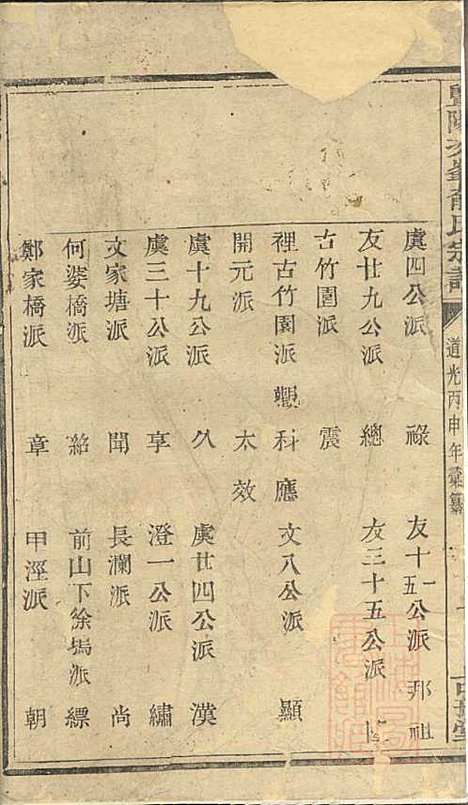 暨陽次峯俞氏宗譜
道光丙申年彙纂
虞四公派 祿 友十一五公派 邦祖
友廿九公派 總 友三十五公派
古竹園派 震
裡古竹園派 科應 文八公派 顯
開元派 太效
虞十九公派 久 虞廿四公派 漢
虞三十公派 享 澄一公派 繡
文家塘派 聞 長瀾派 尚
何婆橋派 紹 前山下徐塢派 縹
鄭家橋派 章 甲涇派 朝